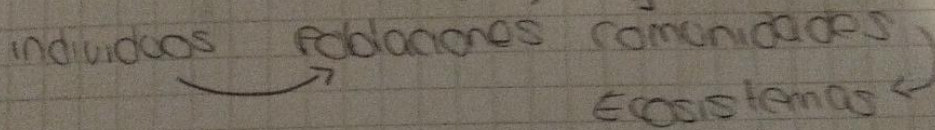 individuos poblaciones comunidades
Ecosistemas